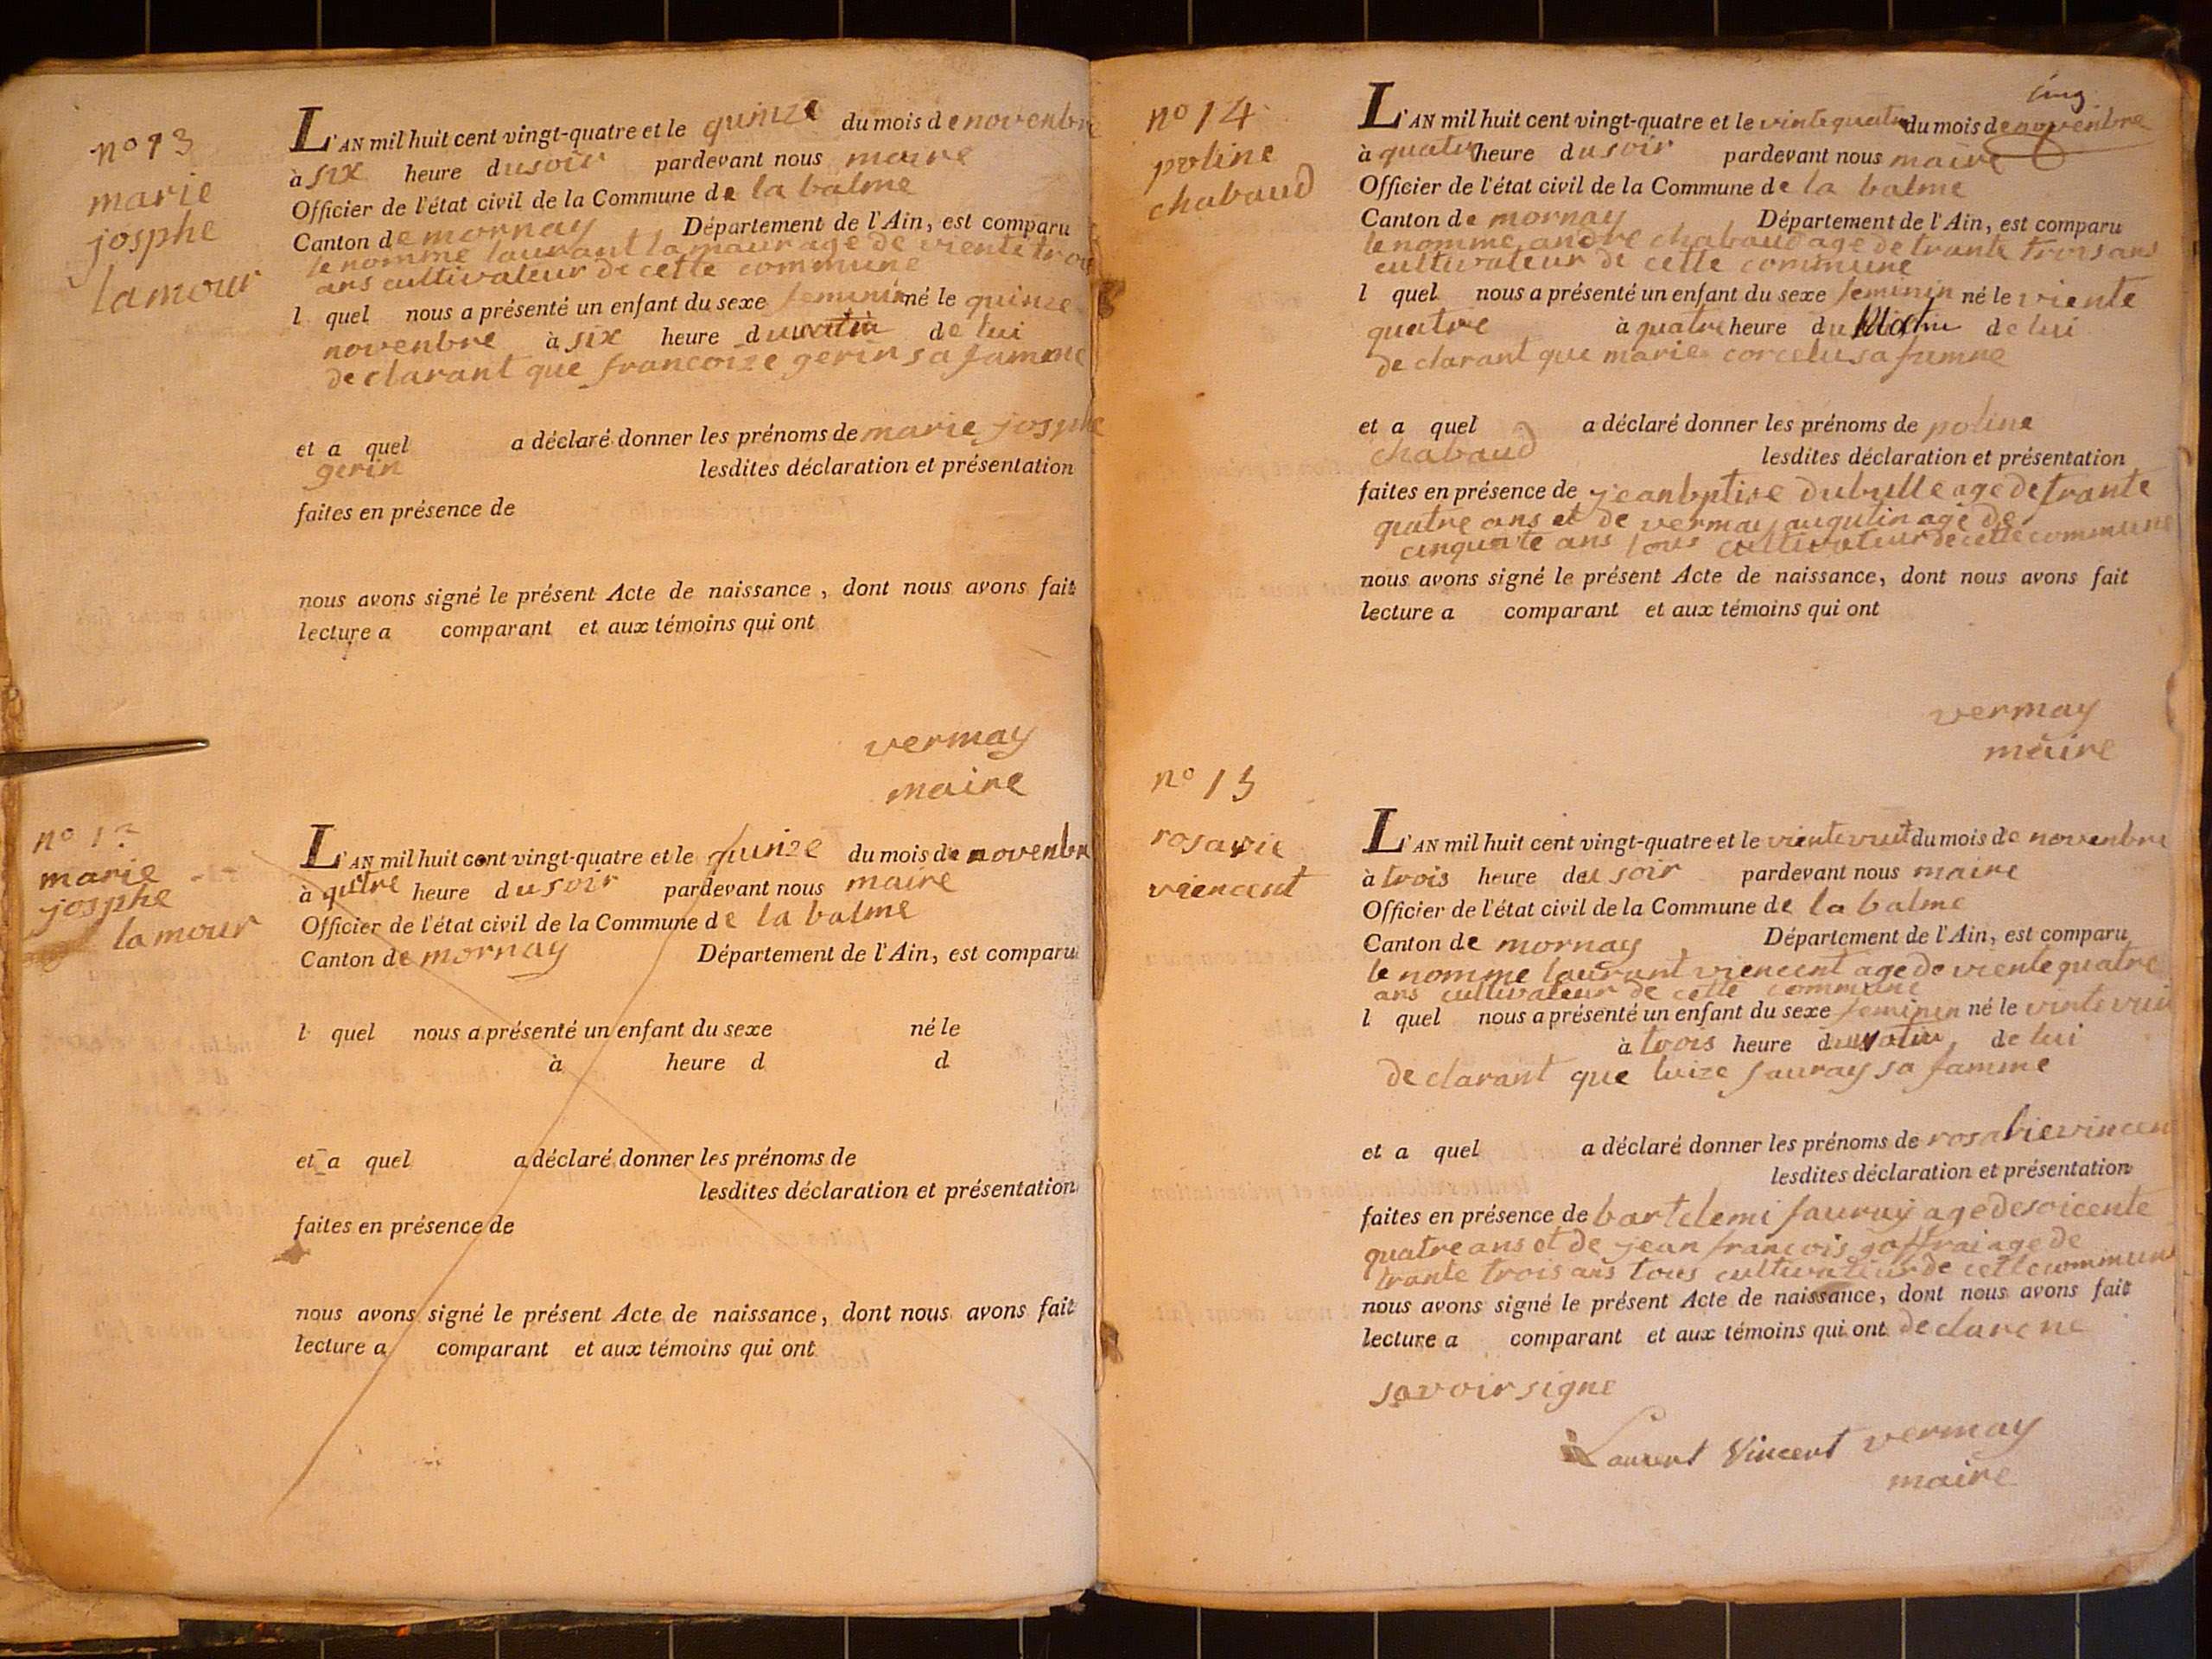 n° 13
marie
josphe
lamour
L'AN mil huit cent vingt-quatre et le quinze du mois de novenbre
à six heure du soir pardevant nous maire
Officier de l'état civil de la Commune de la balme
Canton de mornay Département de l'Ain, est comparu
le nomme laurant lamour age de viente trois
ans cultivateur de cette commune
l quel nous a présenté un enfant du sexe feminin né le quinze
novenbre à six heure du matin de lui
de clarant que francoize gerin sa famme
et a quel a déclaré donner les prénoms de marie josphe
gerin lesdites déclaration et présentation
faites en présence de
nous avons signé le présent Acte de naissance, dont nous avons fait
lecture a comparant et aux témoins qui ont
vermay
maire
n° 13
marie
josphe
lamour
L'AN mil huit cent vingt-quatre et le quinze du mois de novenbre
à qutre heure du soir pardevant nous maire
Officier de l'état civil de la Commune de la balme
Canton de mornay Département de l'Ain, est comparu
l quel nous a présenté un enfant du sexe né le
à heure d d
et a quel a déclaré donner les prénoms de
lesdites déclaration et présentation
faites en présence de
nous avons signé le présent Acte de naissance, dont nous avons fait
lecture a comparant et aux témoins qui ont
n° 14
poline
chabaud
L'AN mil huit cent vingt-quatre et le vinte quatre du mois de novenbre
à quatre heure du soir pardevant nous maire
Officier de l'état civil de la Commune de la balme
Canton de mornay Département de l'Ain, est comparu
le nomme andre chabaud age de trante trois ans
cultivateur de cette commune
l quel nous a présenté un enfant du sexe feminin né le viente
quatre à quatre heure du Matin de lui
de clarant que marie corcelu sa famne
et a quel a déclaré donner les prénoms de poline
chabaud lesdites déclaration et présentation
faites en présence de jean bptise dubulle age de trante
quatre ans et de vermay augutin age de
cinquante ans tous cultivateur de cette commune
nous avons signé le présent Acte de naissance, dont nous avons fait
lecture a comparant et aux témoins qui ont
vermay
maire
n° 15
rosarie
viencent
L'AN mil huit cent vingt-quatre et le viente vuit du mois de novenbre
à trois heure deu soir pardevant nous maire
Officier de l'état civil de la Commune de la balme
Canton de mornay Département de l'Ain, est comparu
le nomme laurant viencent age de viente quatre
ans cultivateur de cette commune
l quel nous a présenté un enfant du sexe feminin né le vinte vuit
à trois heure du matin de lui
de clarant que luize fauray sa famme
et a quel a déclaré donner les prénoms de rosalie vincen
lesdites déclaration et présentation
faites en présence de bartelemi fauray age de soicente
quatre ans et de jean francois goffrai age de
trante trois ans tous cultivateur de cette commune
nous avons signé le présent Acte de naissance, dont nous avons fait
lecture a comparant et aux témoins qui ont declare ne
savoir signe
Laurent Vincent vermay
maire